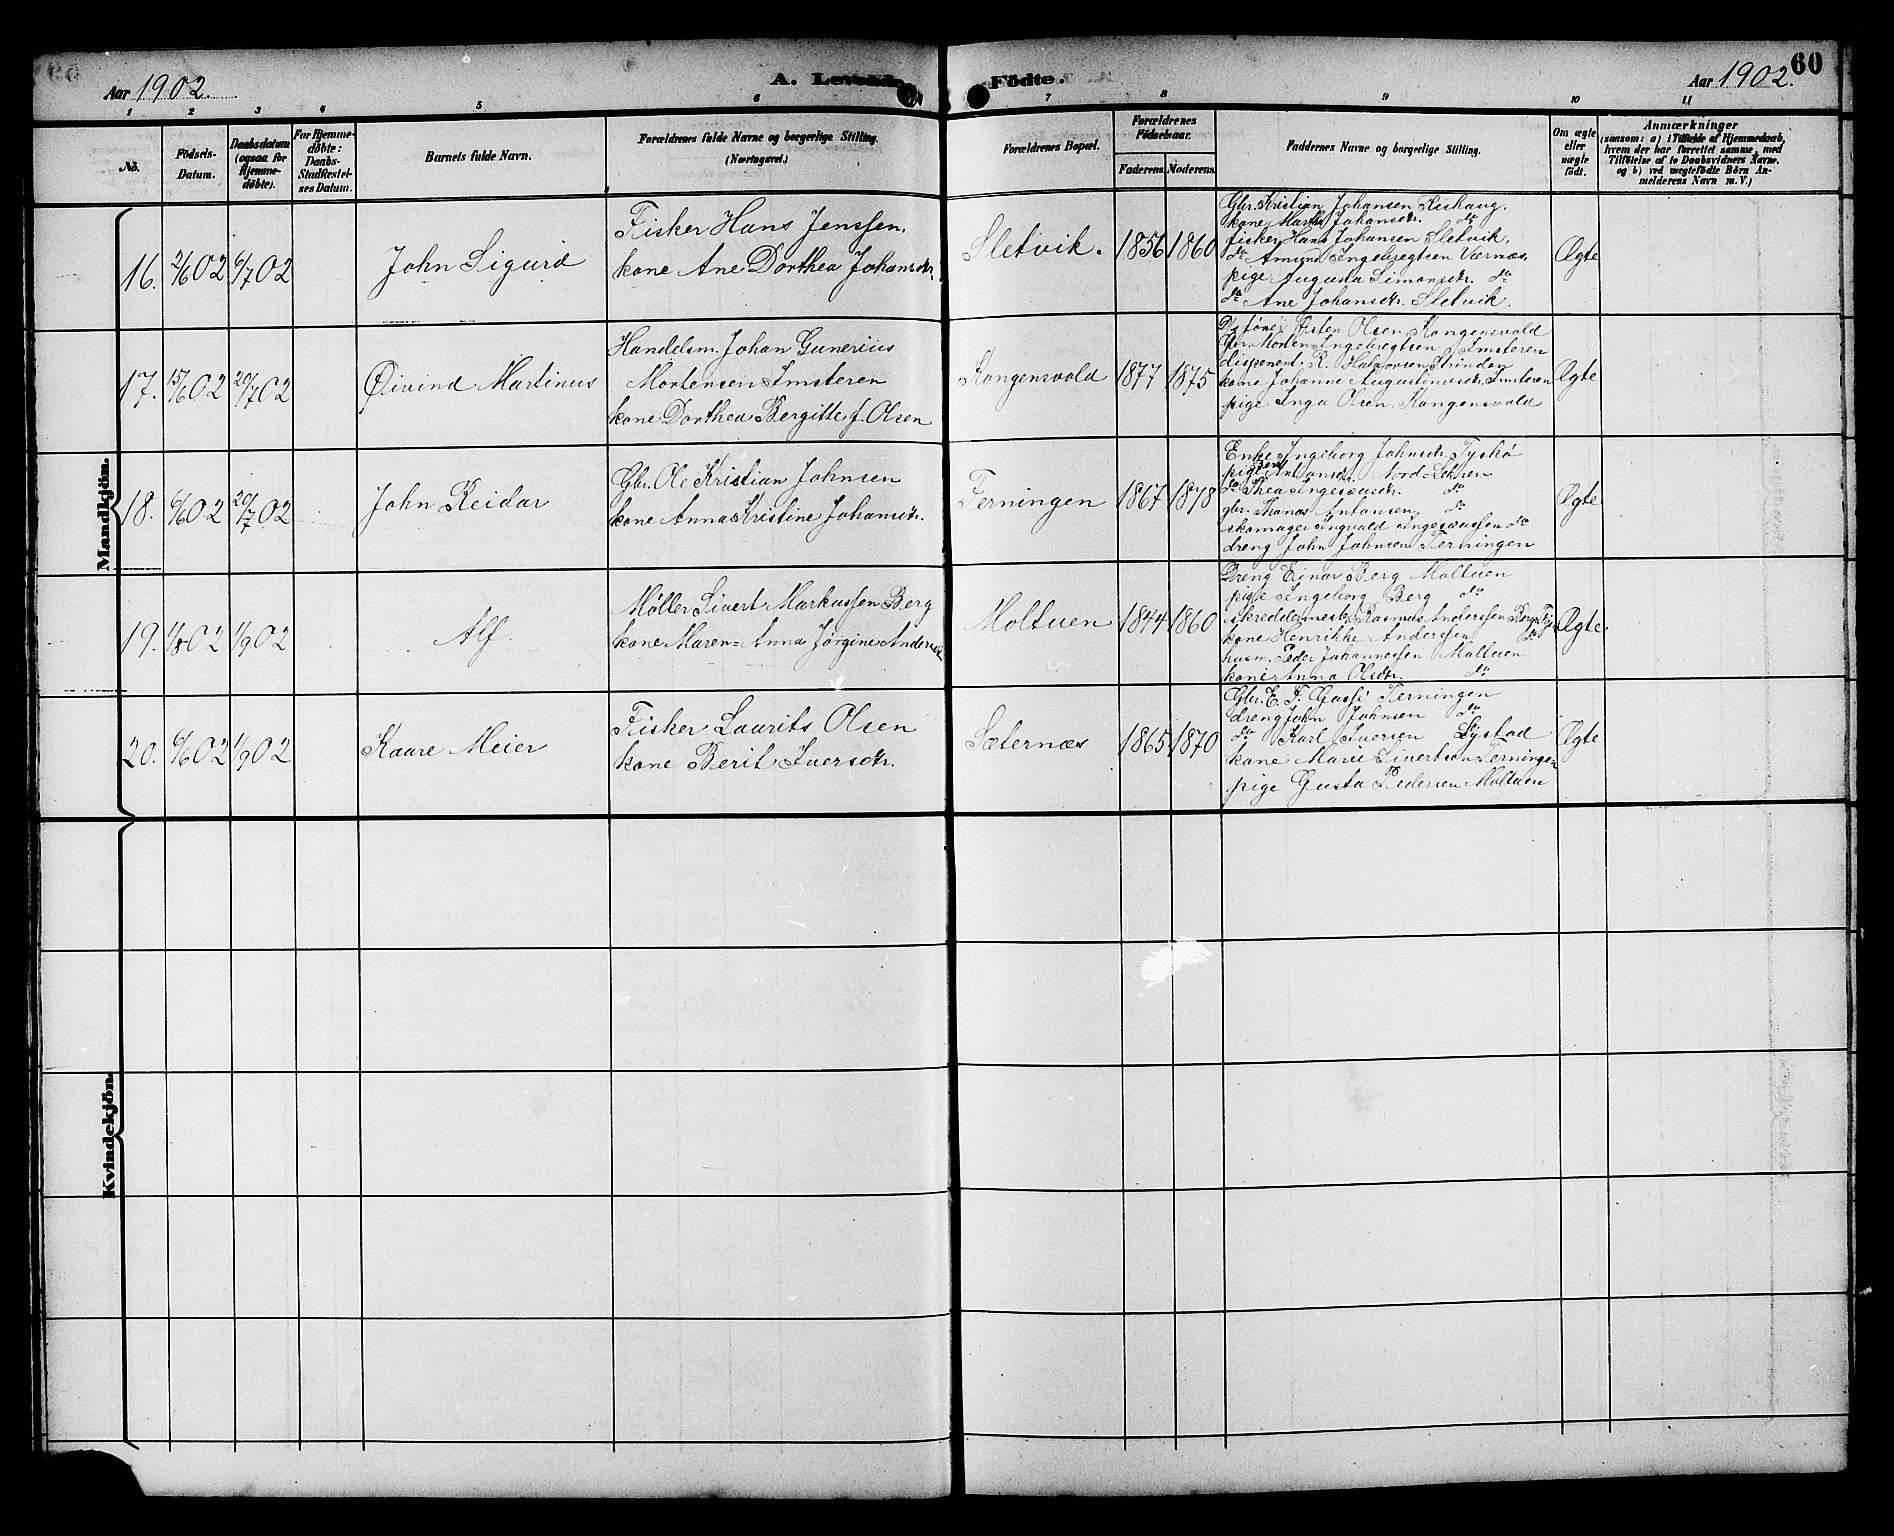 Aar 1902.
A. Levende Födte.
Aar 1902.
60
1 2 3 4 5 6 7 8 9 10 11
No.
Födsels-
Datum.
Daabsdatum
(ogsaa for
Hjemme-
döbte).
For Hjemme-
döbte:
Daabs-
Stadfæstel-
ses Datum.
Barnets fulde Navn.
Forældrenes fulde Navne og borgerlige Stilling.
(Næringsvei.)
Forældrenes Bopæl.
Forældrenes
Födselsaar.
Faderens. Moderens.
Faddernes Navne og borgerlige Stilling.
Om ægte
eller
uægte
födt.
Anmærkninger
(saasom: a) i Tilfælde af Hjemmedaab,
hvem der har forrettet samme, med
Tilföielse af to Daabsvidners Navne.
og b) ved uægtefödte Börn An-
melderens Navn m. V.)
Mandkjön.
16. 2/6 02 6/7 02
John Sigurd
Fisker Hans Jenssen.
kone Ane Dorthea Johansdtr.
Sletvik.
1856 1860
Gbr. Kristian Johansen Kishaug.
kone Martha Johansdtr. do
fisker Hans Johansen Sletvik.
do Amund Ingebregtsen Værnæs
pige Augusta Simonsdtr. do
do Ane Johansdtr. Sletvik.
Ægte
17. 15/6 02 20/7 02
Øivind Martinus
Handelsm. Johan Gunerius
Mortensen Imsteren
kone Dorthea Bergitte f. Olsen
Kongensvold
1877 1875
Olsen Kongensvold
Gbr. Morten Ingebregtsen Imsteren
disponent R. Halvorsen Strinden
kone Johanne Augustinusdtr. Imsteren
pige Inga Olsen Kongensvold
Ægte
18. 6/6 02 20/7 02
John Reidar
Gbr. Ole Kristian Johnsen
kone Anna Kristine Johansdtr.
Terningen
1867 1878
Enke Ingeborg Johnsdtr. Tyshö
pige Berit Antonsdtr. Nord-Leksen
do Thea Ingebretsdtr. do
gbr. Thomas Antonsen do
skomager Ingvald do
dreng John Johnsen Terningen
Ægte
19. 1/8 02 1/9 02
Alf.
Møller Sivert Markussen Berg
kone Maren-Anna Jørgine Andersen
Moltuen
1844 1860
Dreng Einar Berg Moltuen
pige Ingeborg Berg do
skreddermester Rasmus Anderssen Berg
kone Henrikke Anderssen do
husm. Peder Johannessen Moltuen
kone Anna Olsdtr. do
Ægte.
20. 6/6 02 1/9 02
Kaare Meier
Fisker Laurits Olsen
kone Berit Iversdtr.
Sæternæs
1865 1870
Gbr. E. F. Terningen
dreng John Johnsen do
do Karl Iversen Lystad
kone Marie Sivertsen Terningen
pige Gusta Pedersen Moltuen
Ægte
Kvindekjön.